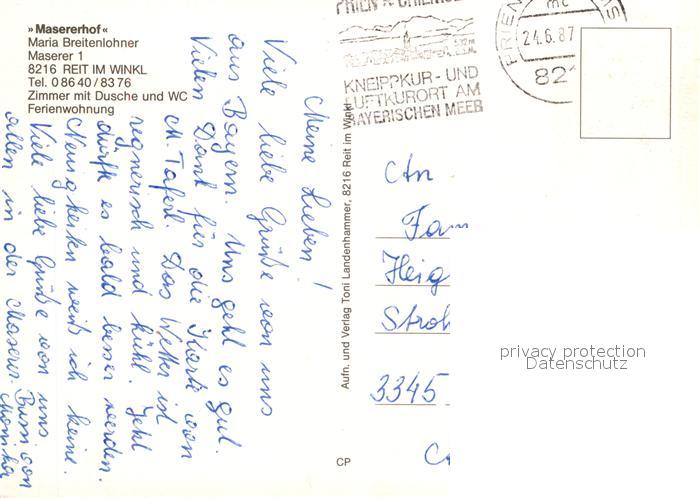 »Masererhof«
Maria Breitenlohner
Maserer 1
8216 REIT IM WINKL
Tel. 0 86 40 / 83 76
Zimmer mit Dusche und WC
Ferienwohnung
Meine Lieben!
Viele liebe Grüße von uns
aus Bayern. Uns geht es gut.
Vielen Dank für die Karte von
M. Taferl. Das Wetter ist
regnerisch und kühl. Jetzt
dürfte es bald besser werden.
Neuigkeiten weiß ich keine.
Viele liebe Grüße von uns
allen in der Maserer.
Bussi von
Monika
Aufn. und Verlag Toni Landenhammer, 8216 Reit im Winkl
CP
PRIEN A CHIEMSEE
KNEIPPKUR- UND
LUFTKURORT AM
BAYERISCHEN MEER
24.6.87
82
An
Fam
Heig
Stroh
3345
privacy protection
Datenschutz